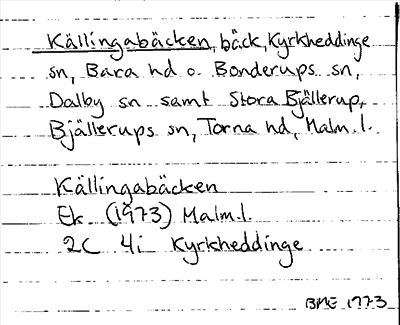 Källingabäcken, bäck, Kyrkheddinge
sn, Bara hd o. Bonderups sn,
Dalby sn samt Stora Bjällerup,
Bjällerups sn, Torna hd, Malm.l.
Källingabäcken
Ek (1973) Malm.l.
2C 4i Kyrkheddinge
BME 1973